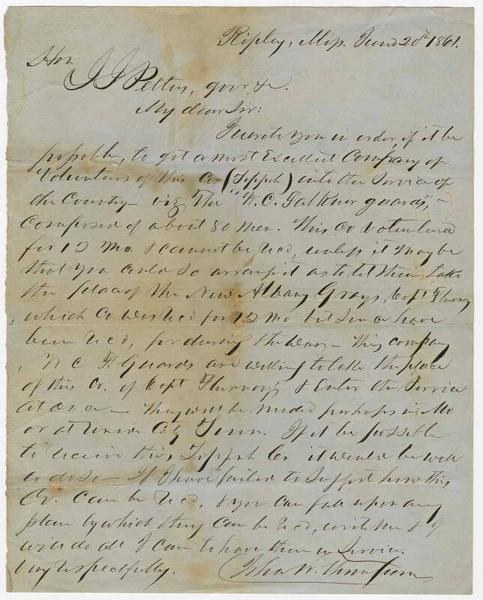 Ripley, Miss. June 20th 1861.
Hon
J J Pettus, gov. &c.
My dear Sir:
I write you in order, if it be
possible, to get a most Excellent Company of
Volunteers of this Co (Tippah) into the Service of
the Country — viz The "W. C. Falkner guards, —
Composed of about 80 men. This Co volunteered
for 12 mo. & cannot be rec'd, unless it may be
that you could so arrange it as to let them take
the place of the New Albany Grays, Capt
which Co was rec'd for 12 mo but since have
been rec'd, for during the war — This company
W C F. Guards are willing to take the place
of this Co. of Capt & Enter the Service
at once — They will be needed perhaps in Mo
or at Union City Tenn. If it be possible
to receive this Tippah Co it would be well
to do so — If I have failed to suggest how this
Co. can be rec'd, & you can fall upon any
plan by which they can be rec'd, write me & I
will do all I can to have them in Service.
Very respectfully. John W. Thompson